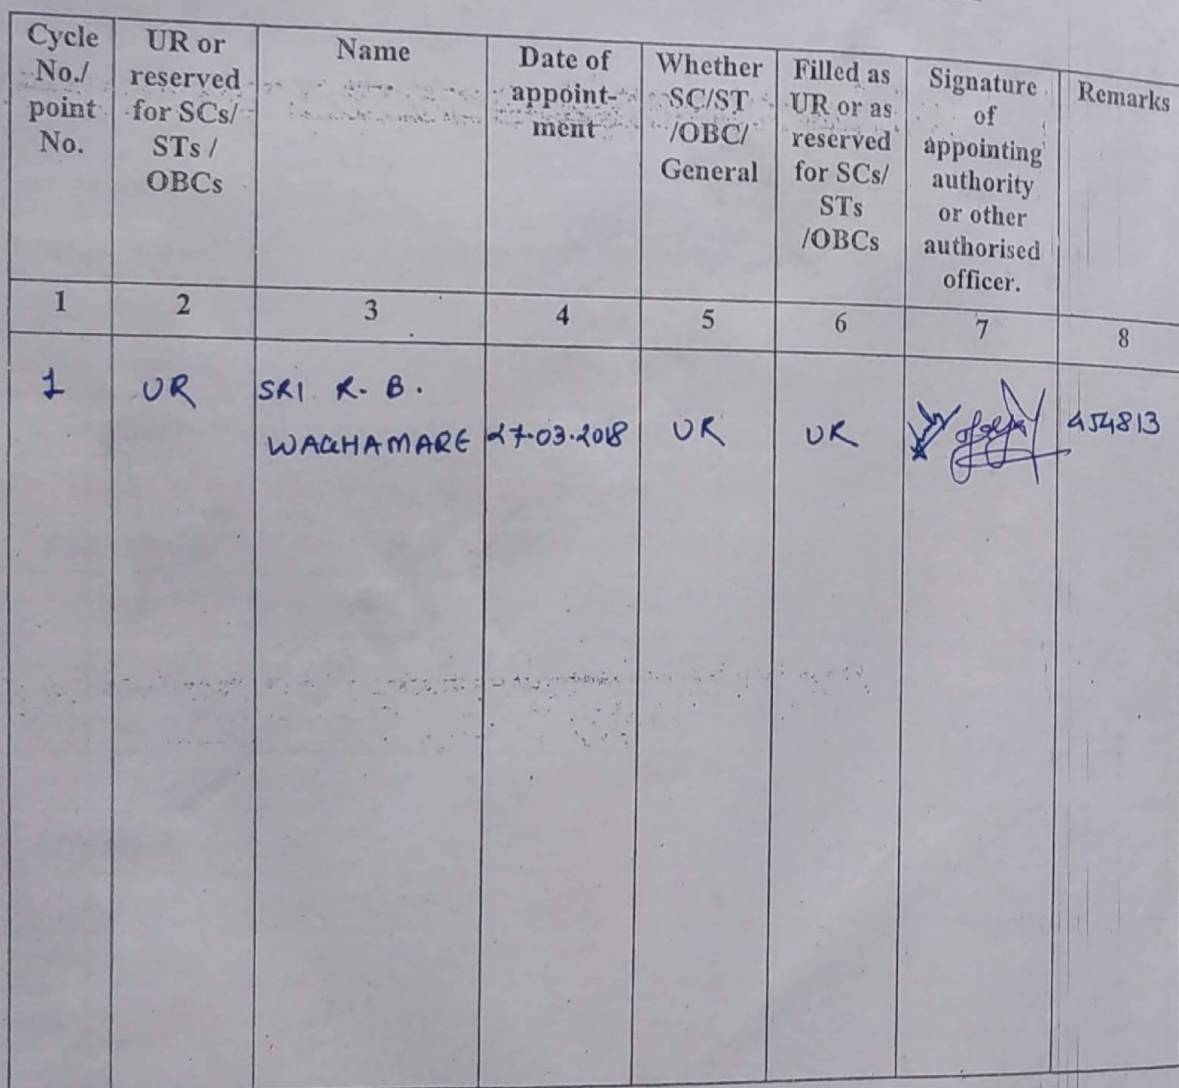 Cycle No./ point No.
UR or reserved for SCs/ STs / OBCs
Name
Date of appoint- ment
Whether SC/ST /OBC/ General
Filled as UR or as reserved for SCs/ STs /OBCs
Signature of appointing authority or other authorised officer.
Remarks
1 2 3 4 5 6 7 8
1 UR SRI R. B.
WAGHAMARE 27.03.2018 UR UR 454813